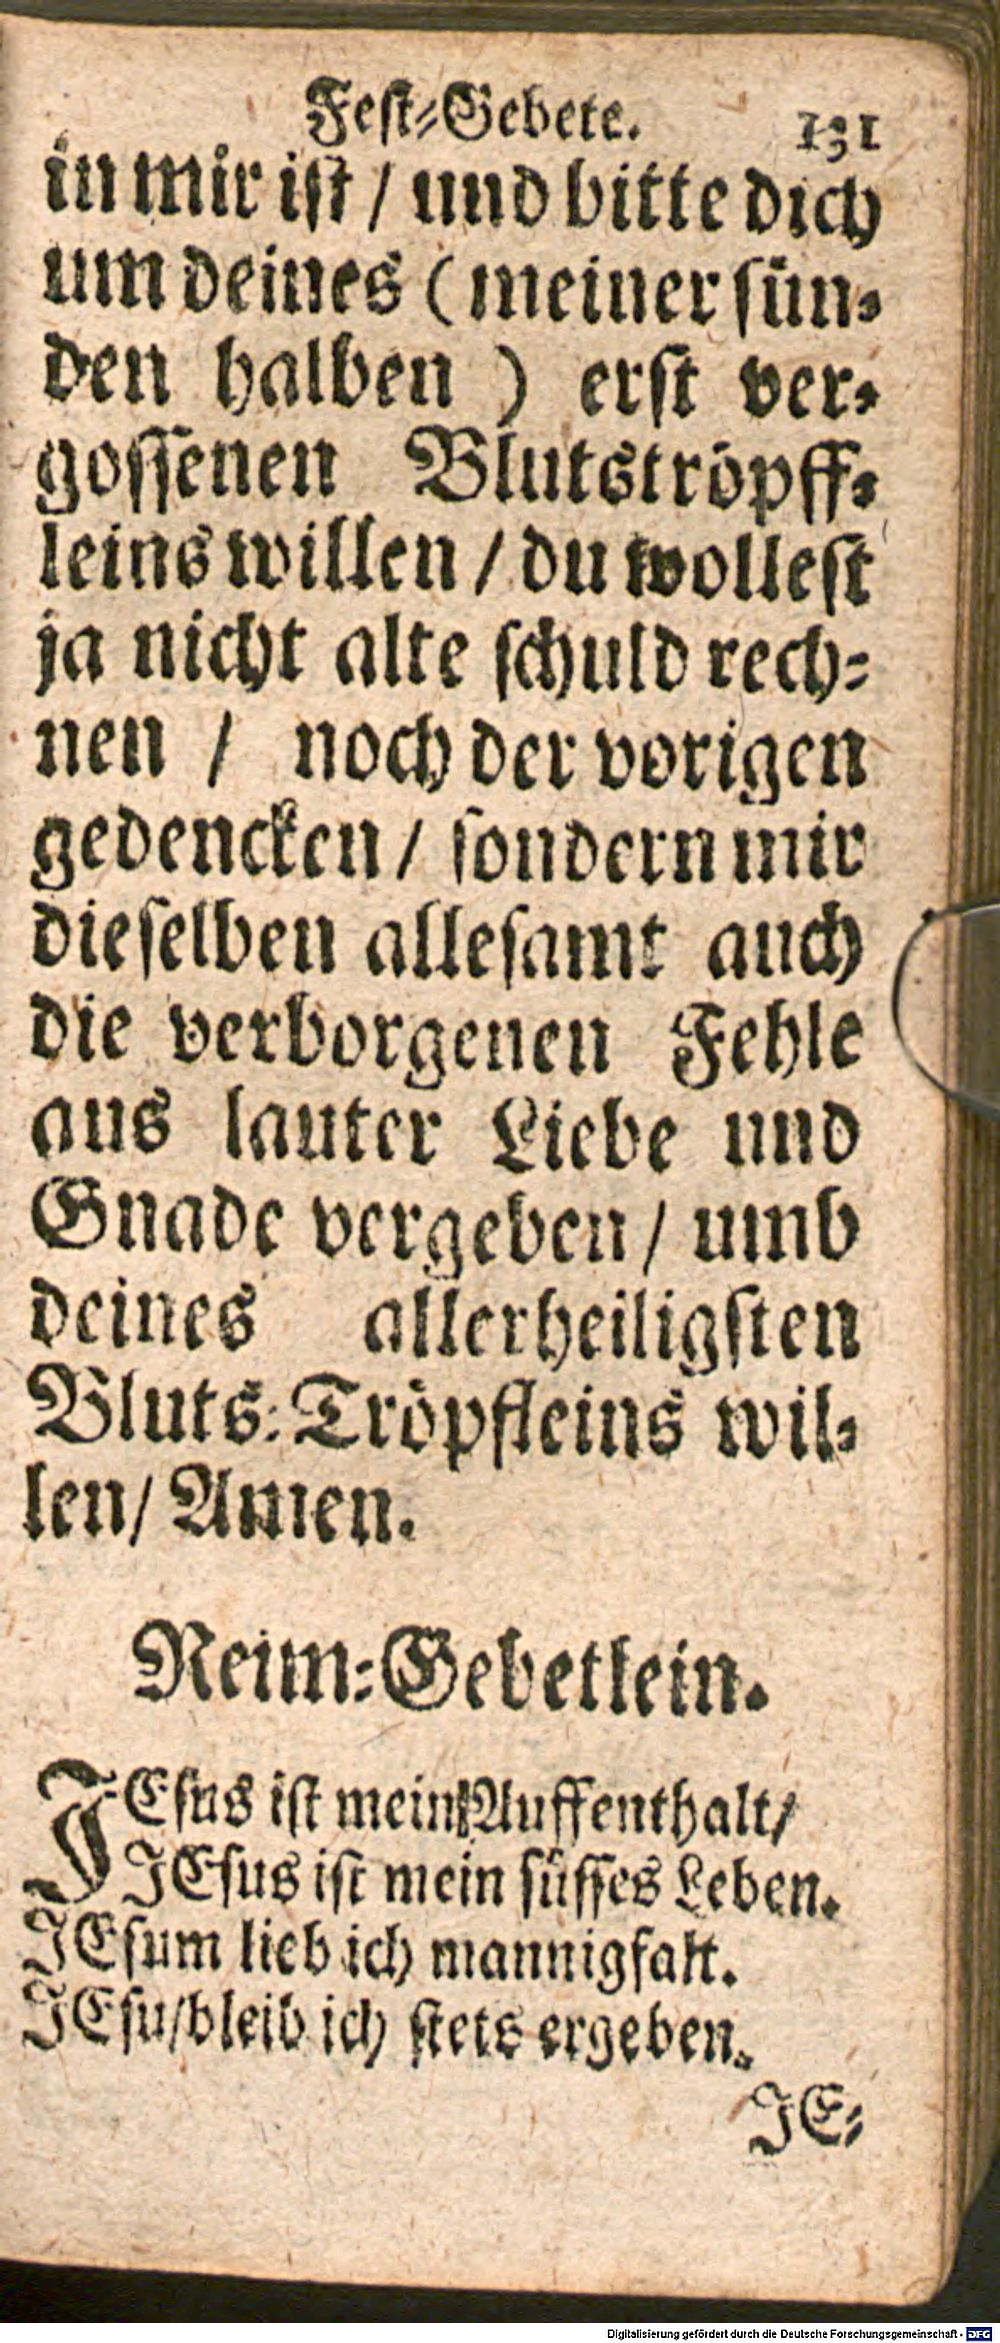 Feſt⸗Gebete. 131
in mir iſt / und bitte dich
um deines ( meiner ſün⸗
den halben ) erſt ver⸗
goſſenen Blutströpff⸗
leins willen / du wolleſt
ja nicht alte ſchuld rech⸗
nen / noch der vorigen
gedencken / ſondern mir
dieſelben alleſamt auch
die verborgenen Fehle
aus lauter Liebe und
Gnade vergeben / umb
deines allerheiligſten
Bluts⸗Tröpfleins wil⸗
len / Amen.
Reim⸗Gebetlein.
JEſus iſt mein Auffenthalt /
JEſus iſt mein ſüſſes Leben.
JEſum lieb ich mannigfalt.
JEſu / bleib ich ſtets ergeben.
JE⸗
Digitalisierung gefördert durch die Deutsche Forschungsgemeinschaft - DFG